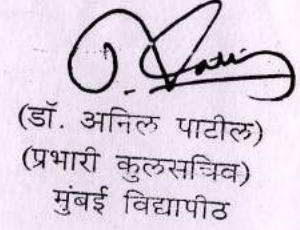 (डॉ. अनिल पाटील)
(प्रभारी कुलसचिव)
मुंबई विद्यापीठ